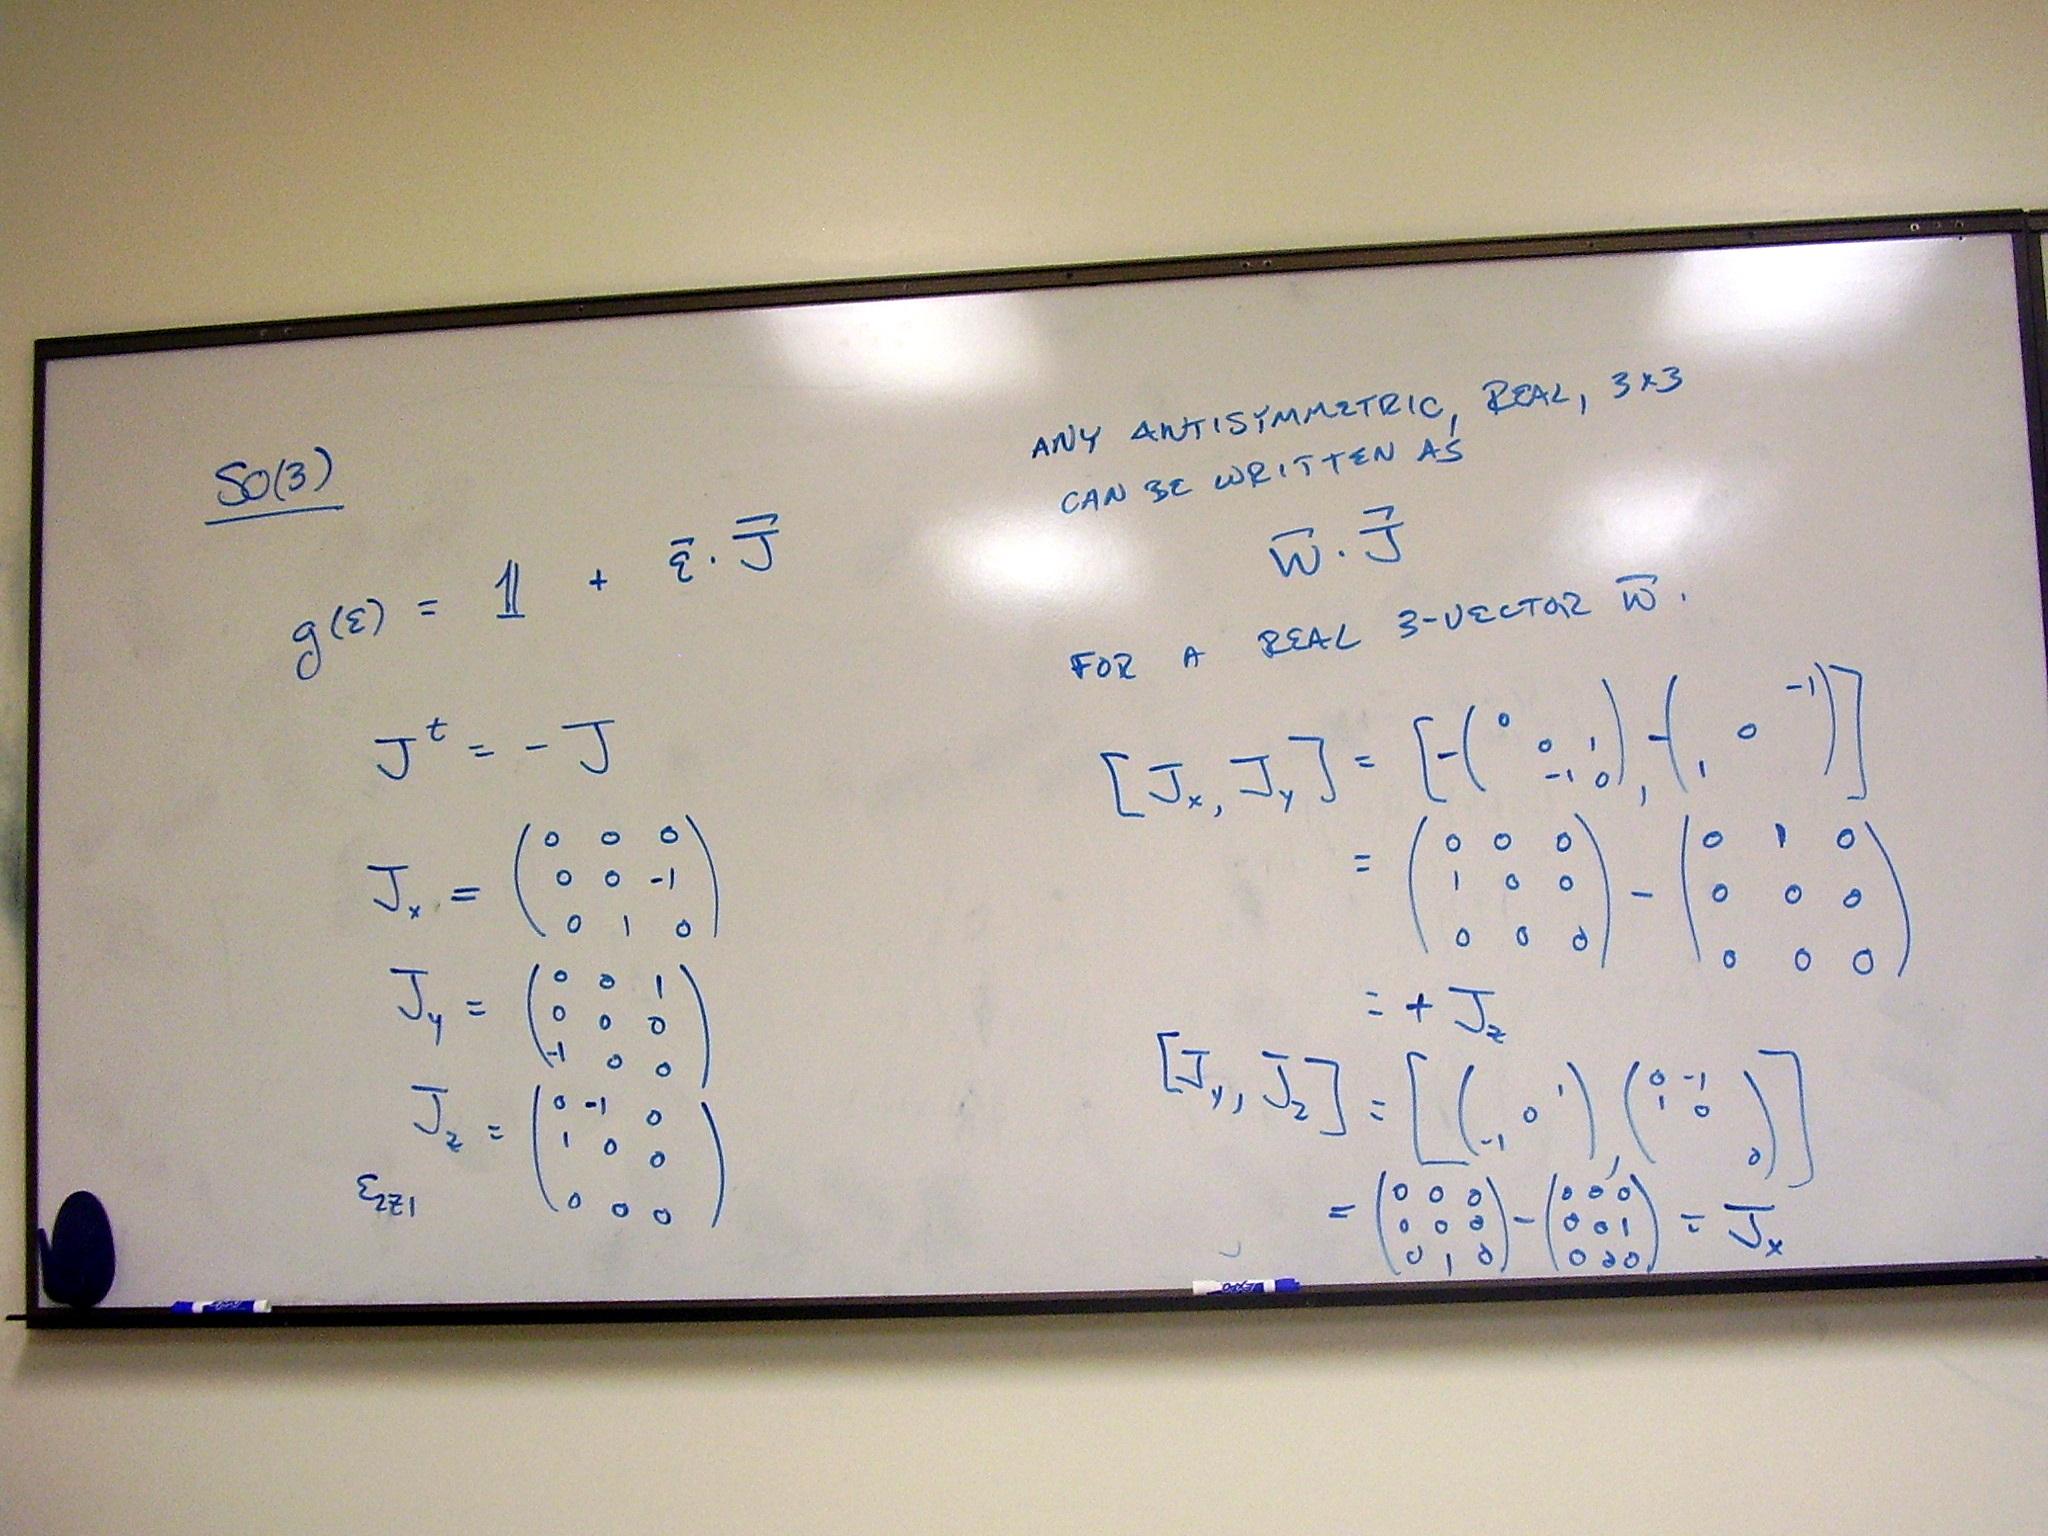 SO(3)
g(ε) = 𝟙 + ε⃗ · J⃗
J^t = - J
J_x = ( 0 0 0
0 0 -1
0 1 0 )
J_y = ( 0 0 1
0 0 0
-1 0 0 )
J_z = ( 0 -1 0
1 0 0
0 0 0 )
ε_2z1
ANY ANTISYMMETRIC, REAL, 3×3
CAN BE WRITTEN AS
w⃗ · J⃗
FOR A REAL 3-VECTOR w⃗.
[J_x, J_y] = [ -( 0
0 1
-1 0 ), -( -1
0
1 ) ]
= ( 0 0 0
1 0 0
0 0 0 ) - ( 0 1 0
0 0 0
0 0 0 )
= + J_z
[J_y, J_z] = [ ( 1
0
-1 ), ( 0 -1
1 0
0 ) ]
= ( 0 0 0
0 0 0
0 1 0 ) - ( 0 0 0
0 0 1
0 0 0 ) = J_x